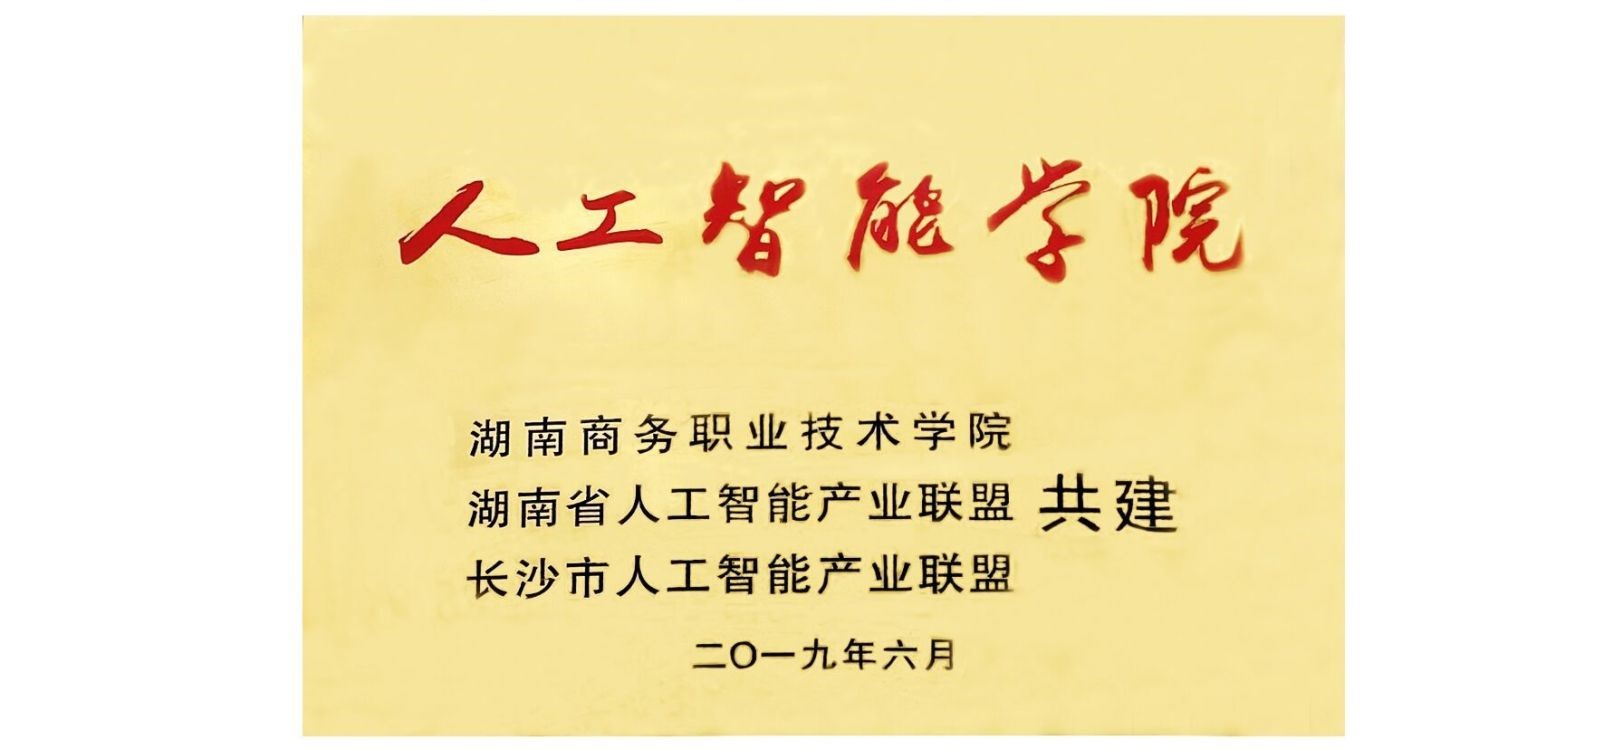 人工智能学院
湖南商务职业技术学院
湖南省人工智能产业联盟 共建
长沙市人工智能产业联盟
二〇一九年六月